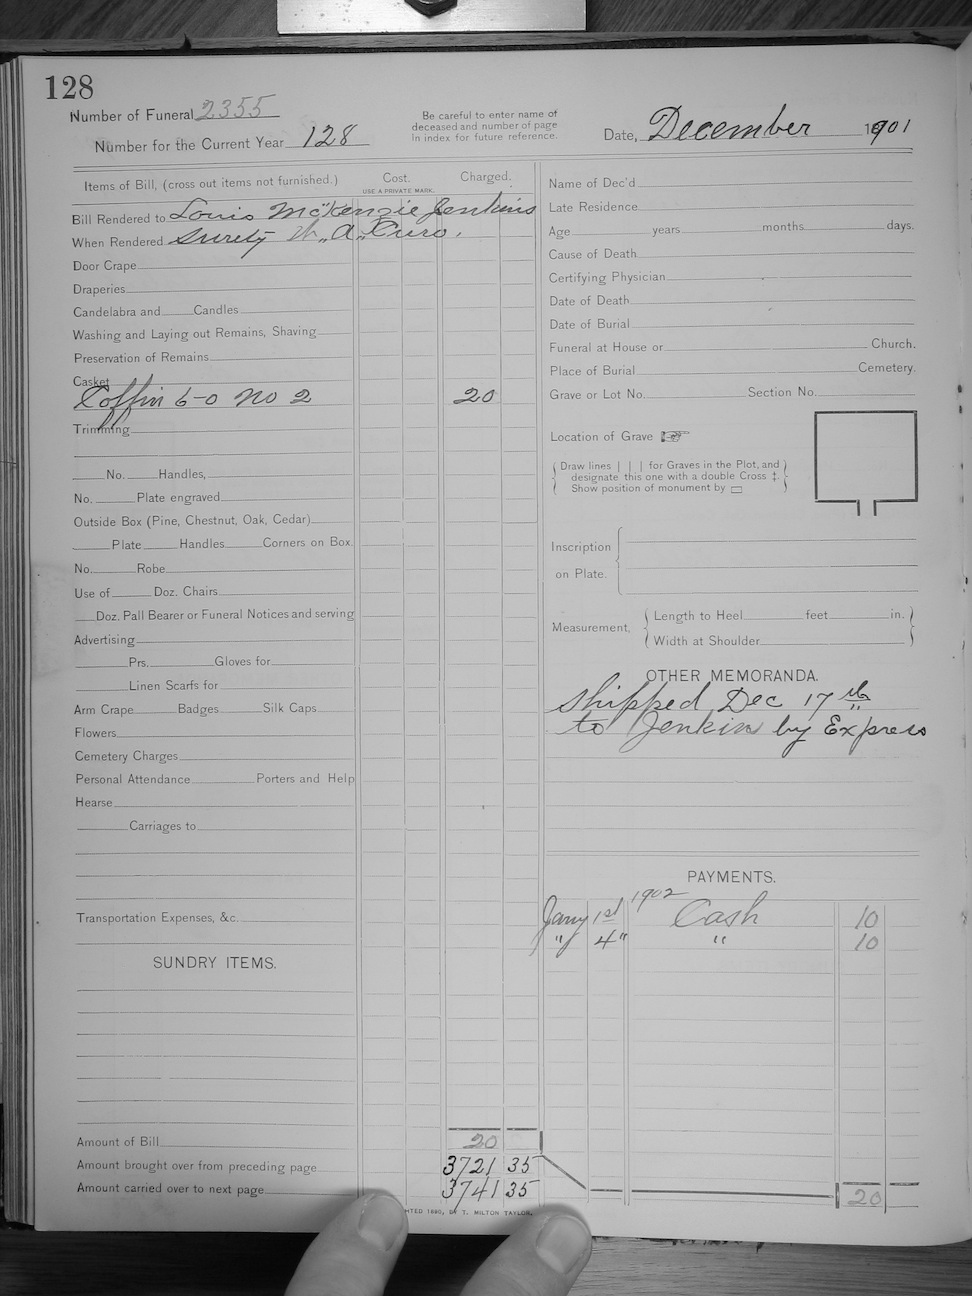 128
Number of Funeral 2355
Number for the Current Year 128
Be careful to enter name of
deceased and number of page
in index for future reference.
Date, December 1901
Items of Bill, (cross out items not furnished.) Cost. Charged.
USE A PRIVATE MARK.
Bill Rendered to Louis McKenzie Jenkins
When Rendered Surety
Door Crape
Draperies
Candelabra and Candles
Washing and Laying out Remains, Shaving
Preservation of Remains
Casket
Coffin 6-0 No 2 20
Trimming
No. Handles,
No. Plate engraved
Outside Box (Pine, Chestnut, Oak, Cedar)
Plate Handles Corners on Box.
No. Robe
Use of Doz. Chairs
Doz. Pall Bearer or Funeral Notices and serving
Advertising
Prs. Gloves for
Linen Scarfs for
Arm Crape Badges Silk Caps
Flowers
Cemetery Charges
Personal Attendance Porters and Help
Hearse
Carriages to
Transportation Expenses, &c.
SUNDRY ITEMS.
Amount of Bill 20
Amount brought over from preceding page 3721 35
Amount carried over to next page 3741 35
HTED 1890, BY T. MILTON TAYLOR.
Name of Dec'd
Late Residence
Age years months days.
Cause of Death
Certifying Physician
Date of Death
Date of Burial
Funeral at House or Church.
Place of Burial Cemetery.
Grave or Lot No. Section No.
Location of Grave
Draw lines | | | for Graves in the Plot, and
designate this one with a double Cross ‡.
Show position of monument by ▭
Inscription
on Plate.
Measurement, Length to Heel feet in.
Width at Shoulder
OTHER MEMORANDA.
Shipped Dec 17th
to Jenkin by Express
PAYMENTS.
1902
Jany 1st Cash 10
" 4" " 10
20